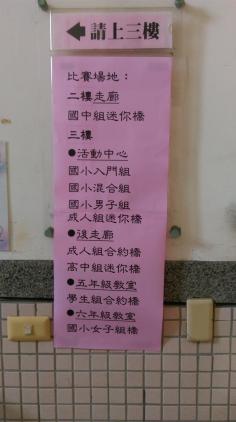 ←請上三樓
比賽場地：
二樓走廊
國中組迷你橋
三樓
●活動中心
國小入門組
國小混合組
國小男子組
成人組迷你橋
●後走廊
成人組合約橋
高中組迷你橋
●五年級教室
學生組合約橋
●六年級教室
國小女子組橋